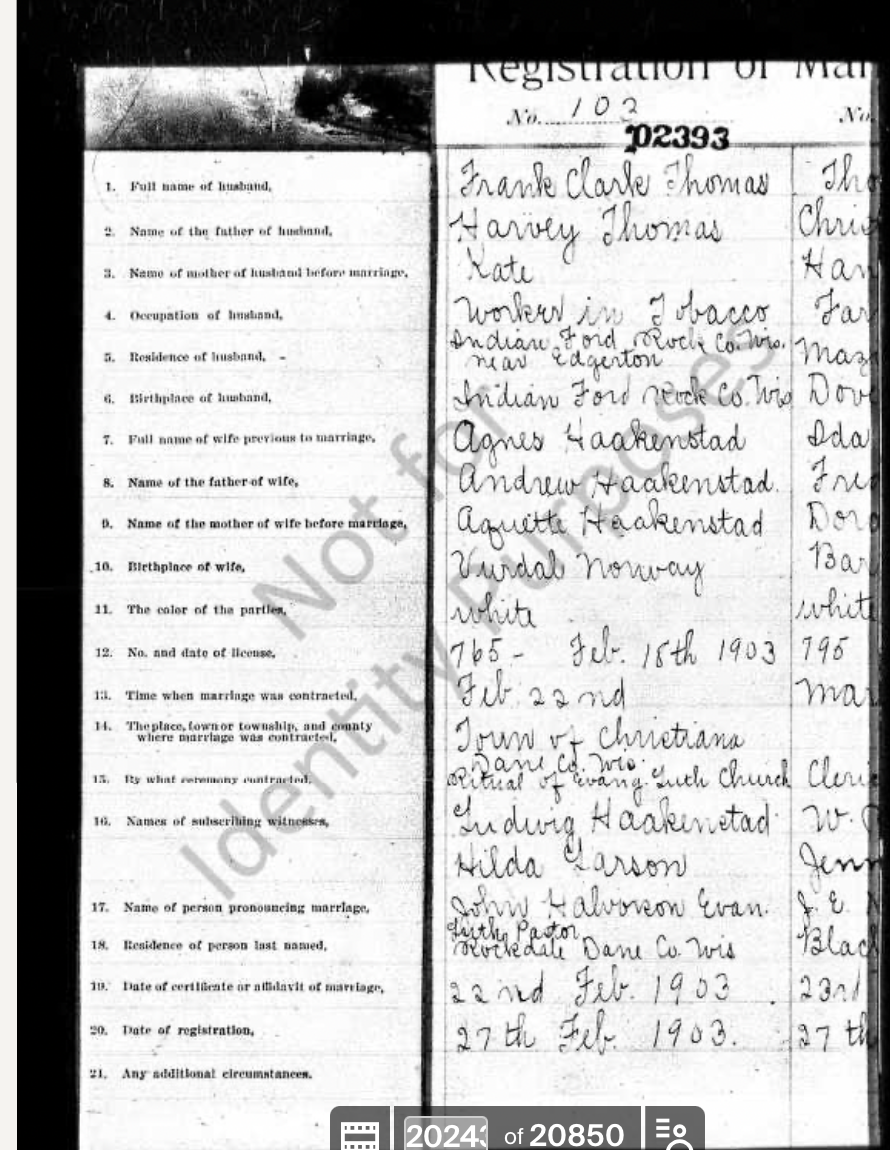 Registration of Mar
No. 102 No.
02393
1. Full name of husband, Frank Clark Thomas Tho
2. Name of the father of husband, Harvey Thomas Chris
3. Name of mother of husband before marriage, Kate Han
4. Occupation of husband, Worker in Tobacco Far
5. Residence of husband, - Indian Ford Rock Co. Wis. near Edgerton Maz
6. Birthplace of husband, Indian Ford Rock Co. Wis Dove
7. Full name of wife previous to marriage, Agnes Haakenstad Ida
8. Name of the father of wife, Andrew Haakenstad. Fred
9. Name of the mother of wife before marriage, Haakenstad Doro
10. Birthplace of wife, Vurdal Norway Bar
11. The color of the parties, white white
12. No. and date of license, 765 - Feb. 18th 1903 795
13. Time when marriage was contracted, Feb. 22nd Mar
14. The place, town or township, and county
where marriage was contracted, Town of Christiana
Dane Co. Wis.
15. By what ceremony contracted, Ritual of Evang. Luth Church Cleri
16. Names of subscribing witnesses, Ludwig Haakenstad W.
Hilda Larson Jenn
17. Name of person pronouncing marriage, John Halvorson Evan. J. E.
Luth. Pastor
18. Residence of person last named, Rockdale Dane Co. Wis Black
19. Date of certificate or affidavit of marriage, 22nd Feb. 1903. 23rd
20. Date of registration, 27th Feb. 1903. 27th
21. Any additional circumstances.
Not for
Identity Purposes
2024 of 20850